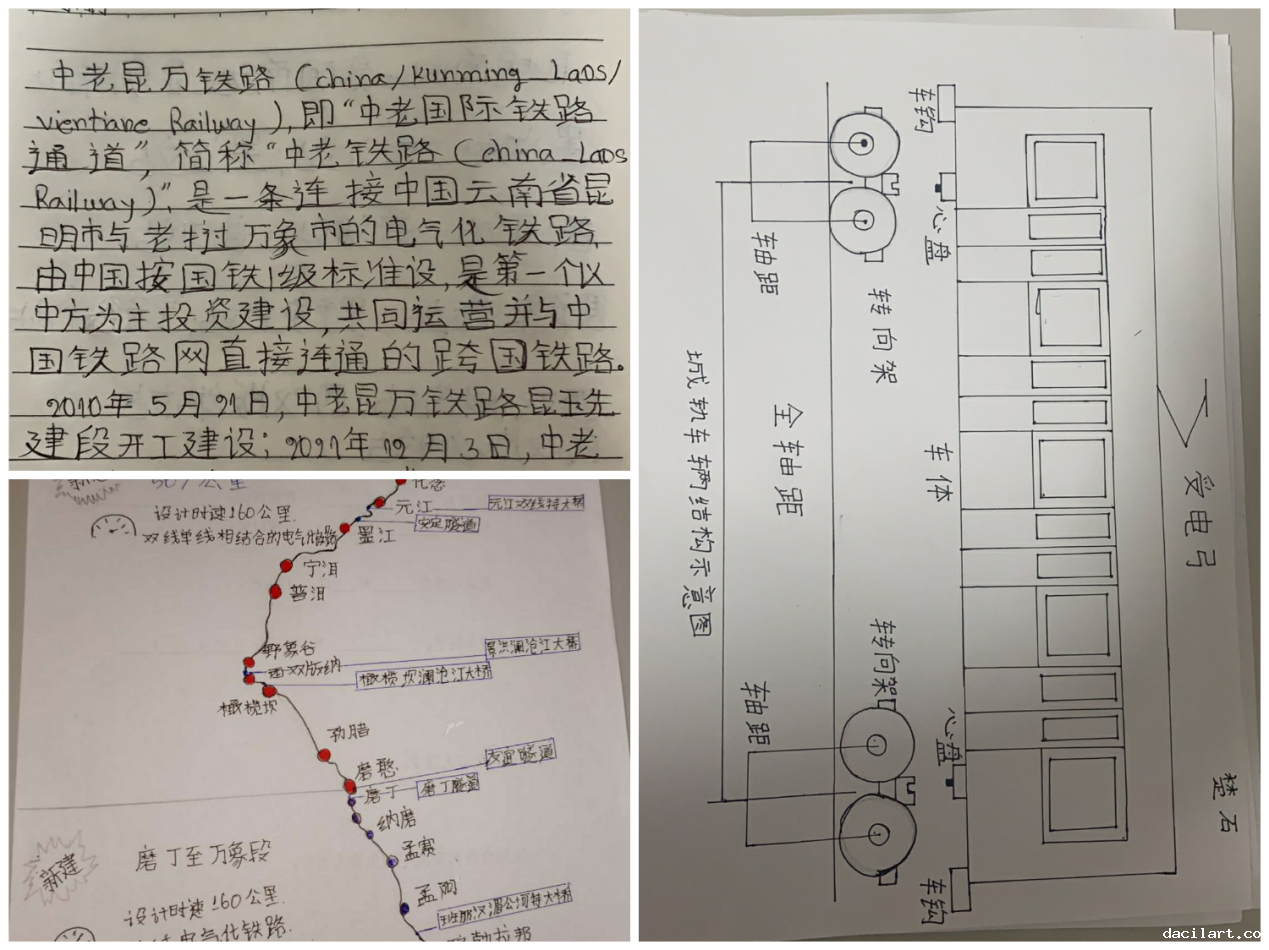 中老昆万铁路 (china/Kunming_Laos/
vientiane Railway), 即“中老国际铁路
通道”, 简称“中老铁路 (china_Laos
Railway)”, 是一条连接中国云南省昆
明市与老挝万象市的电气化铁路,
由中国按国铁1级标准设, 是第一个以
中方为主投资建设, 共同运营并与中
国铁路网直接连通的跨国铁路。
2010年5月21日, 中老昆万铁路昆玉先
建段开工建设; 2021年12月3日, 中老
新建
507公里
设计时速160公里.
双线单线相结合的电气化铁路
元江
元江双线特大桥
安定隧道
墨江
宁洱
普洱
野象谷
西双版纳
景洪澜沧江大桥
橄榄坎澜沧江大桥
橄榄坎
勐腊
磨憨
安定隧道
磨丁
磨丁隧道
纳磨
孟赛
新建
磨丁至万象段
设计时速160公里.
电气化铁路.
孟阿
班那汉湄公河特大桥
琅勃拉邦
车钩
心盘
轴距
转向架
城轨车辆结构示意图
全轴距
车体
受电弓
转向架
轴距
心盘
车钩
楚石
dacilart.co